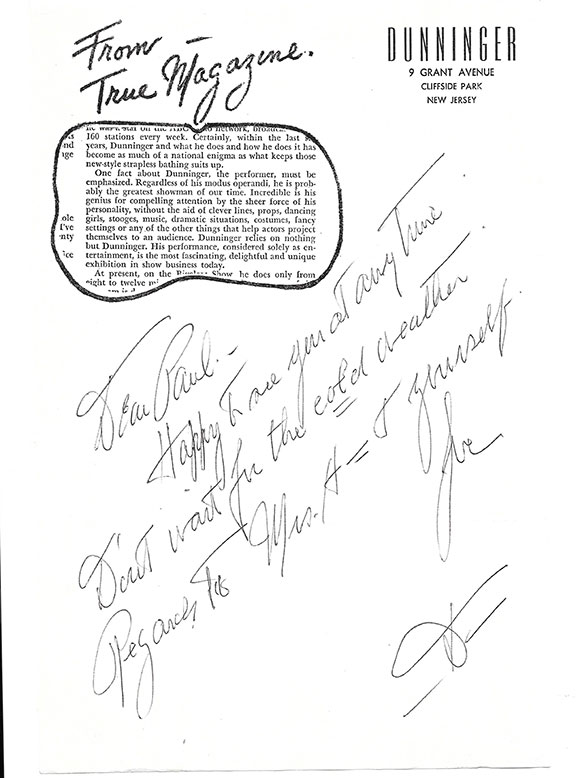 From
True Magazine.
DUNNINGER
9 GRANT AVENUE
CLIFFSIDE PARK
NEW JERSEY
160 stations every week. Certainly, within the last
nd years, Dunninger and what he does and how he does it has
ige become as much of a national enigma as what keeps those
new-style strapless bathing suits up.
One fact about Dunninger, the performer, must be
emphasized. Regardless of his modus operandi, he is prob-
ably the greatest showman of our time. Incredible is his
genius for compelling attention by the sheer force of his
personality, without the aid of clever lines, props, dancing
ole girls, stooges, music, dramatic situations, costumes, fancy
I've settings or any of the other things that help actors project
nty themselves to an audience. Dunninger relies on nothing
but Dunninger. His performance, considered solely as en-
ice tertainment, is the most fascinating, delightful and unique
exhibition in show business today.
At present, on the Show he does only from
eight to twelve
Dear Paul -
Happy To see you at any Time.
Don't wait for the cold weather
Regards To Mrs. H - & yourself.
Joe
D